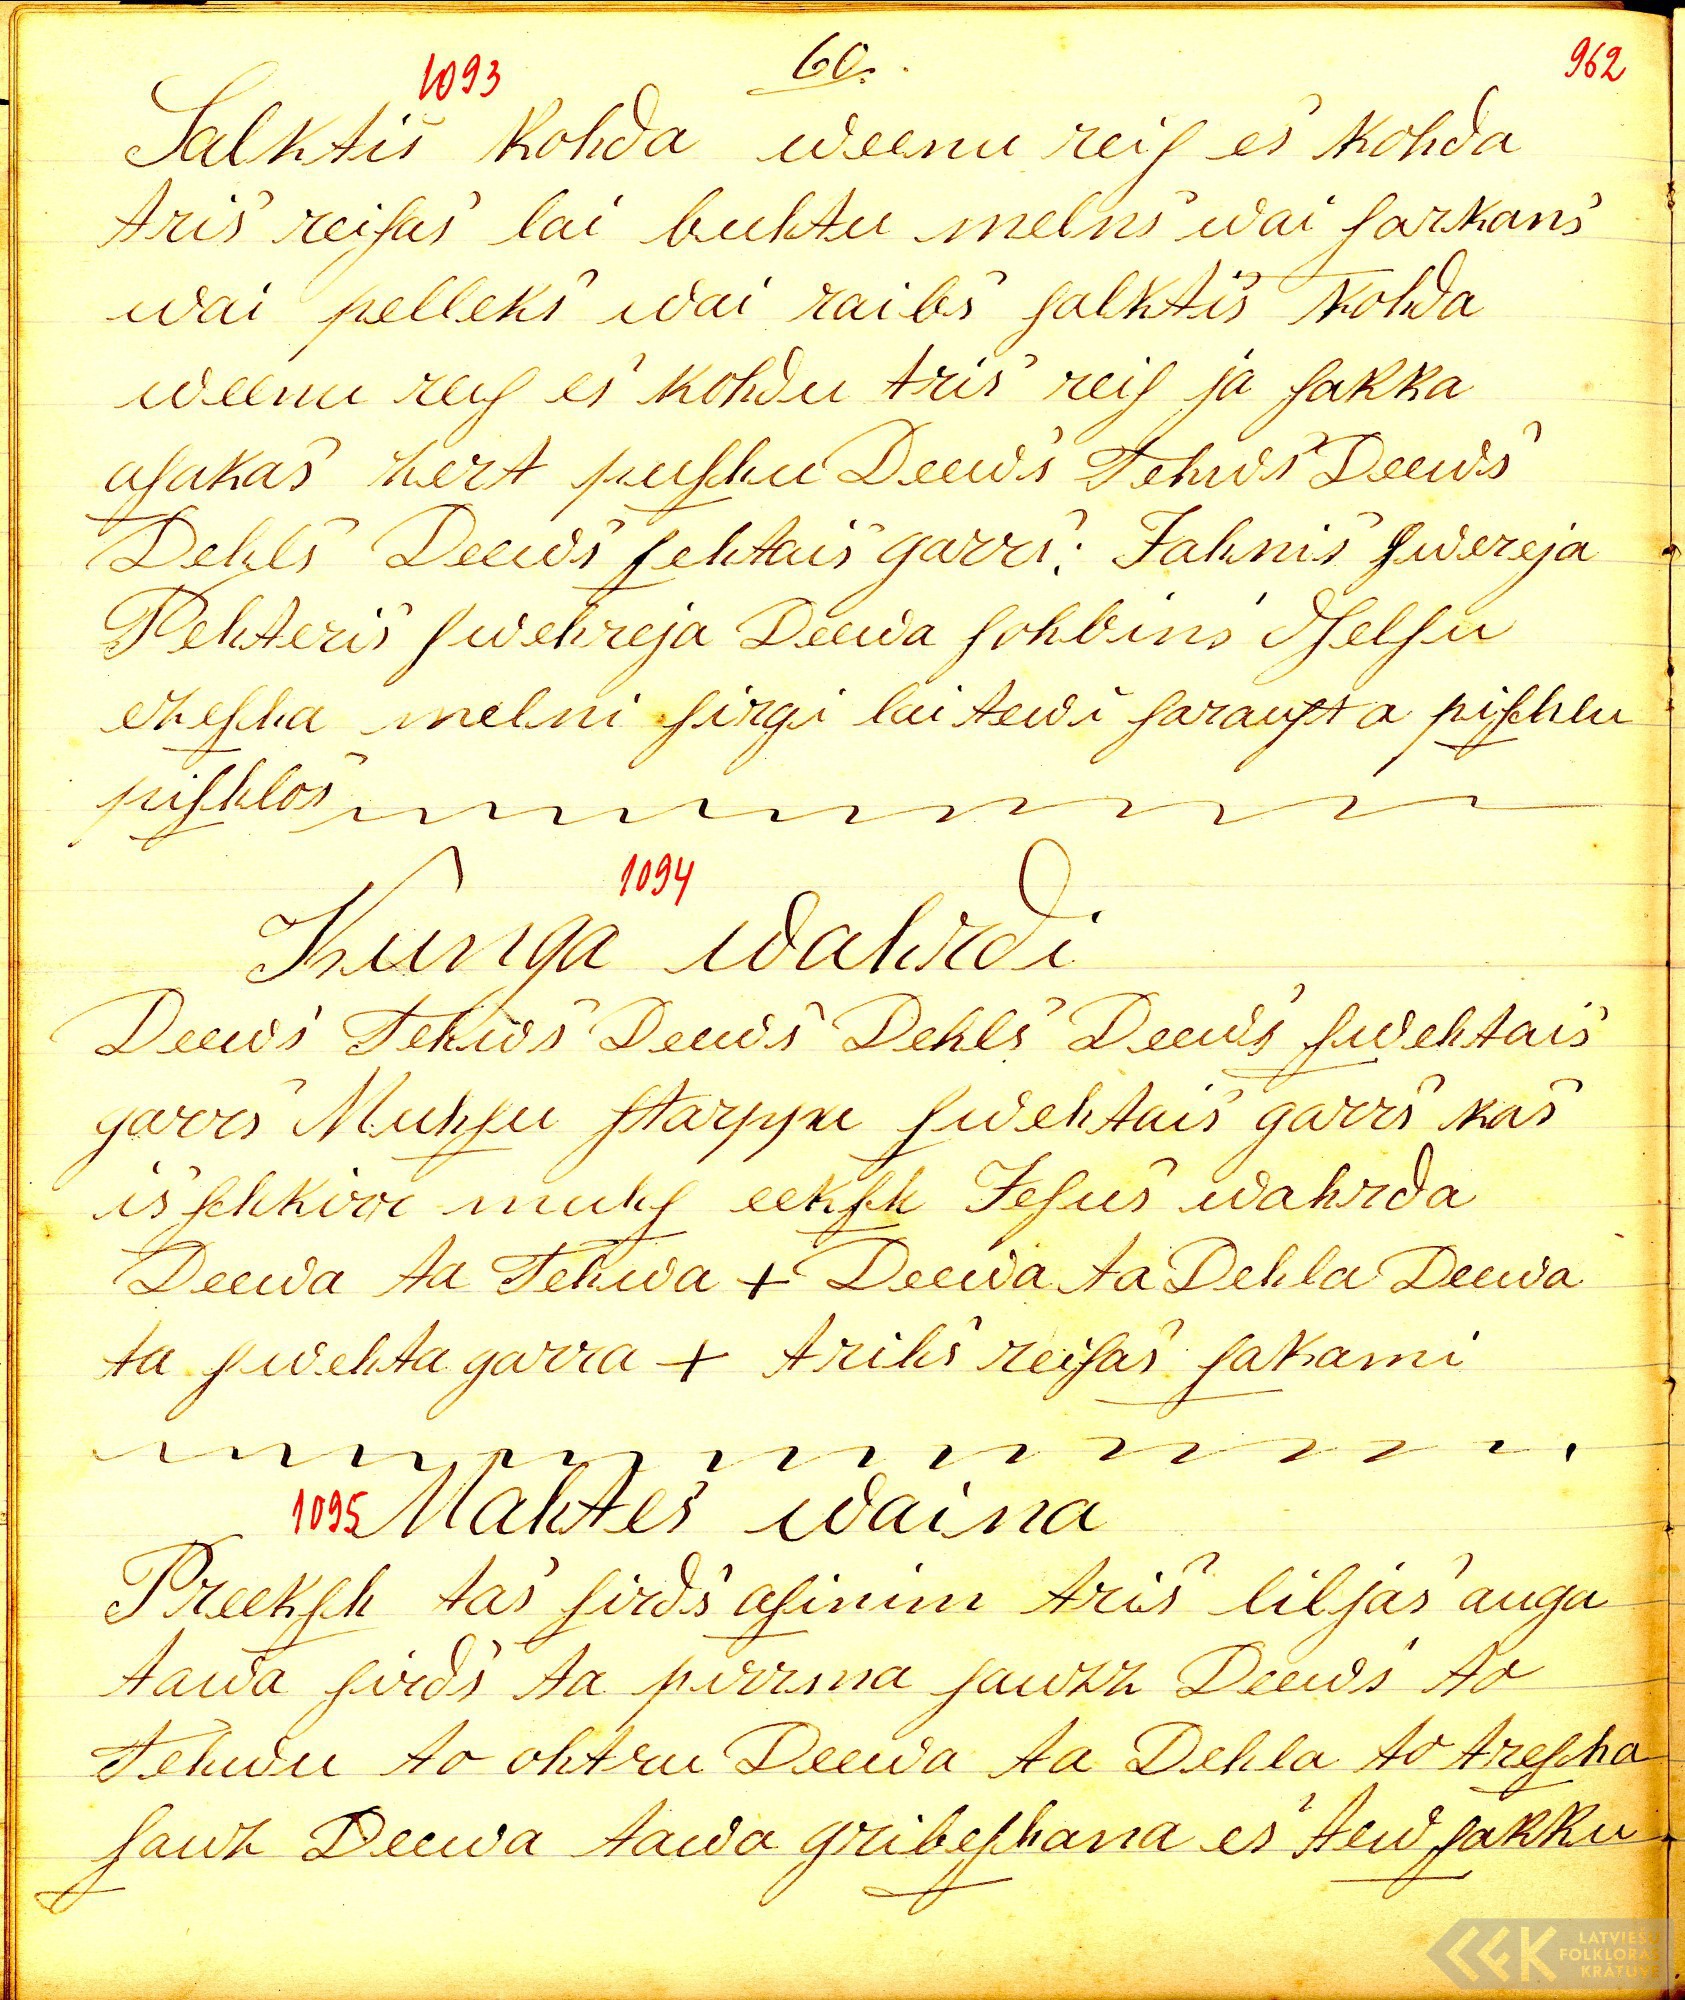 60.
962
1093
Salktis kohda weenu reiſ es kohda
tris reiſas lai buhtu melns wai ſarkans
wai pelleks wai raibs ſalktis kohda
weenu reiſ es kohdu tris reiſ ja ſakka
aſakas kert puſchu Deews Tehws Deews
Dehls Deews ſehtais garrs: Jahnis ſwereja
Pehteris ſwehreja Deewa ſohbins dſelſu
ezeſcha melni ſirgi lai tewi ſarauſta piſchlu
piſchlos
1094
Kunga wahrdi
Deews Tehws Deews Dehls Deews ſwehtais
garrs Muhſu ſtarppu ſwehtais garrs kas
is ſchkirr muhſ eekſch Jeſus wahrda
Deewa ta Tehwa + Deewa ta Dehla Deewa
ta ſwehta garra + trihs reiſas ſakami
1095 Mahtes waina
Preekſch tas ſirds aſinim tris liljas auga
tawa ſirds ta pirrma ſawzz Deews to
Tehwu to ohtru Deewa ta Dehla to treſcha
ſawz Deewa tawa gribeſchana es tew ſakku
LATVIEŠU
FOLKLORAS
KRĀTUVE